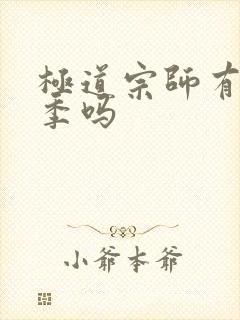 極道宗師有
季嗎
小爺本爺